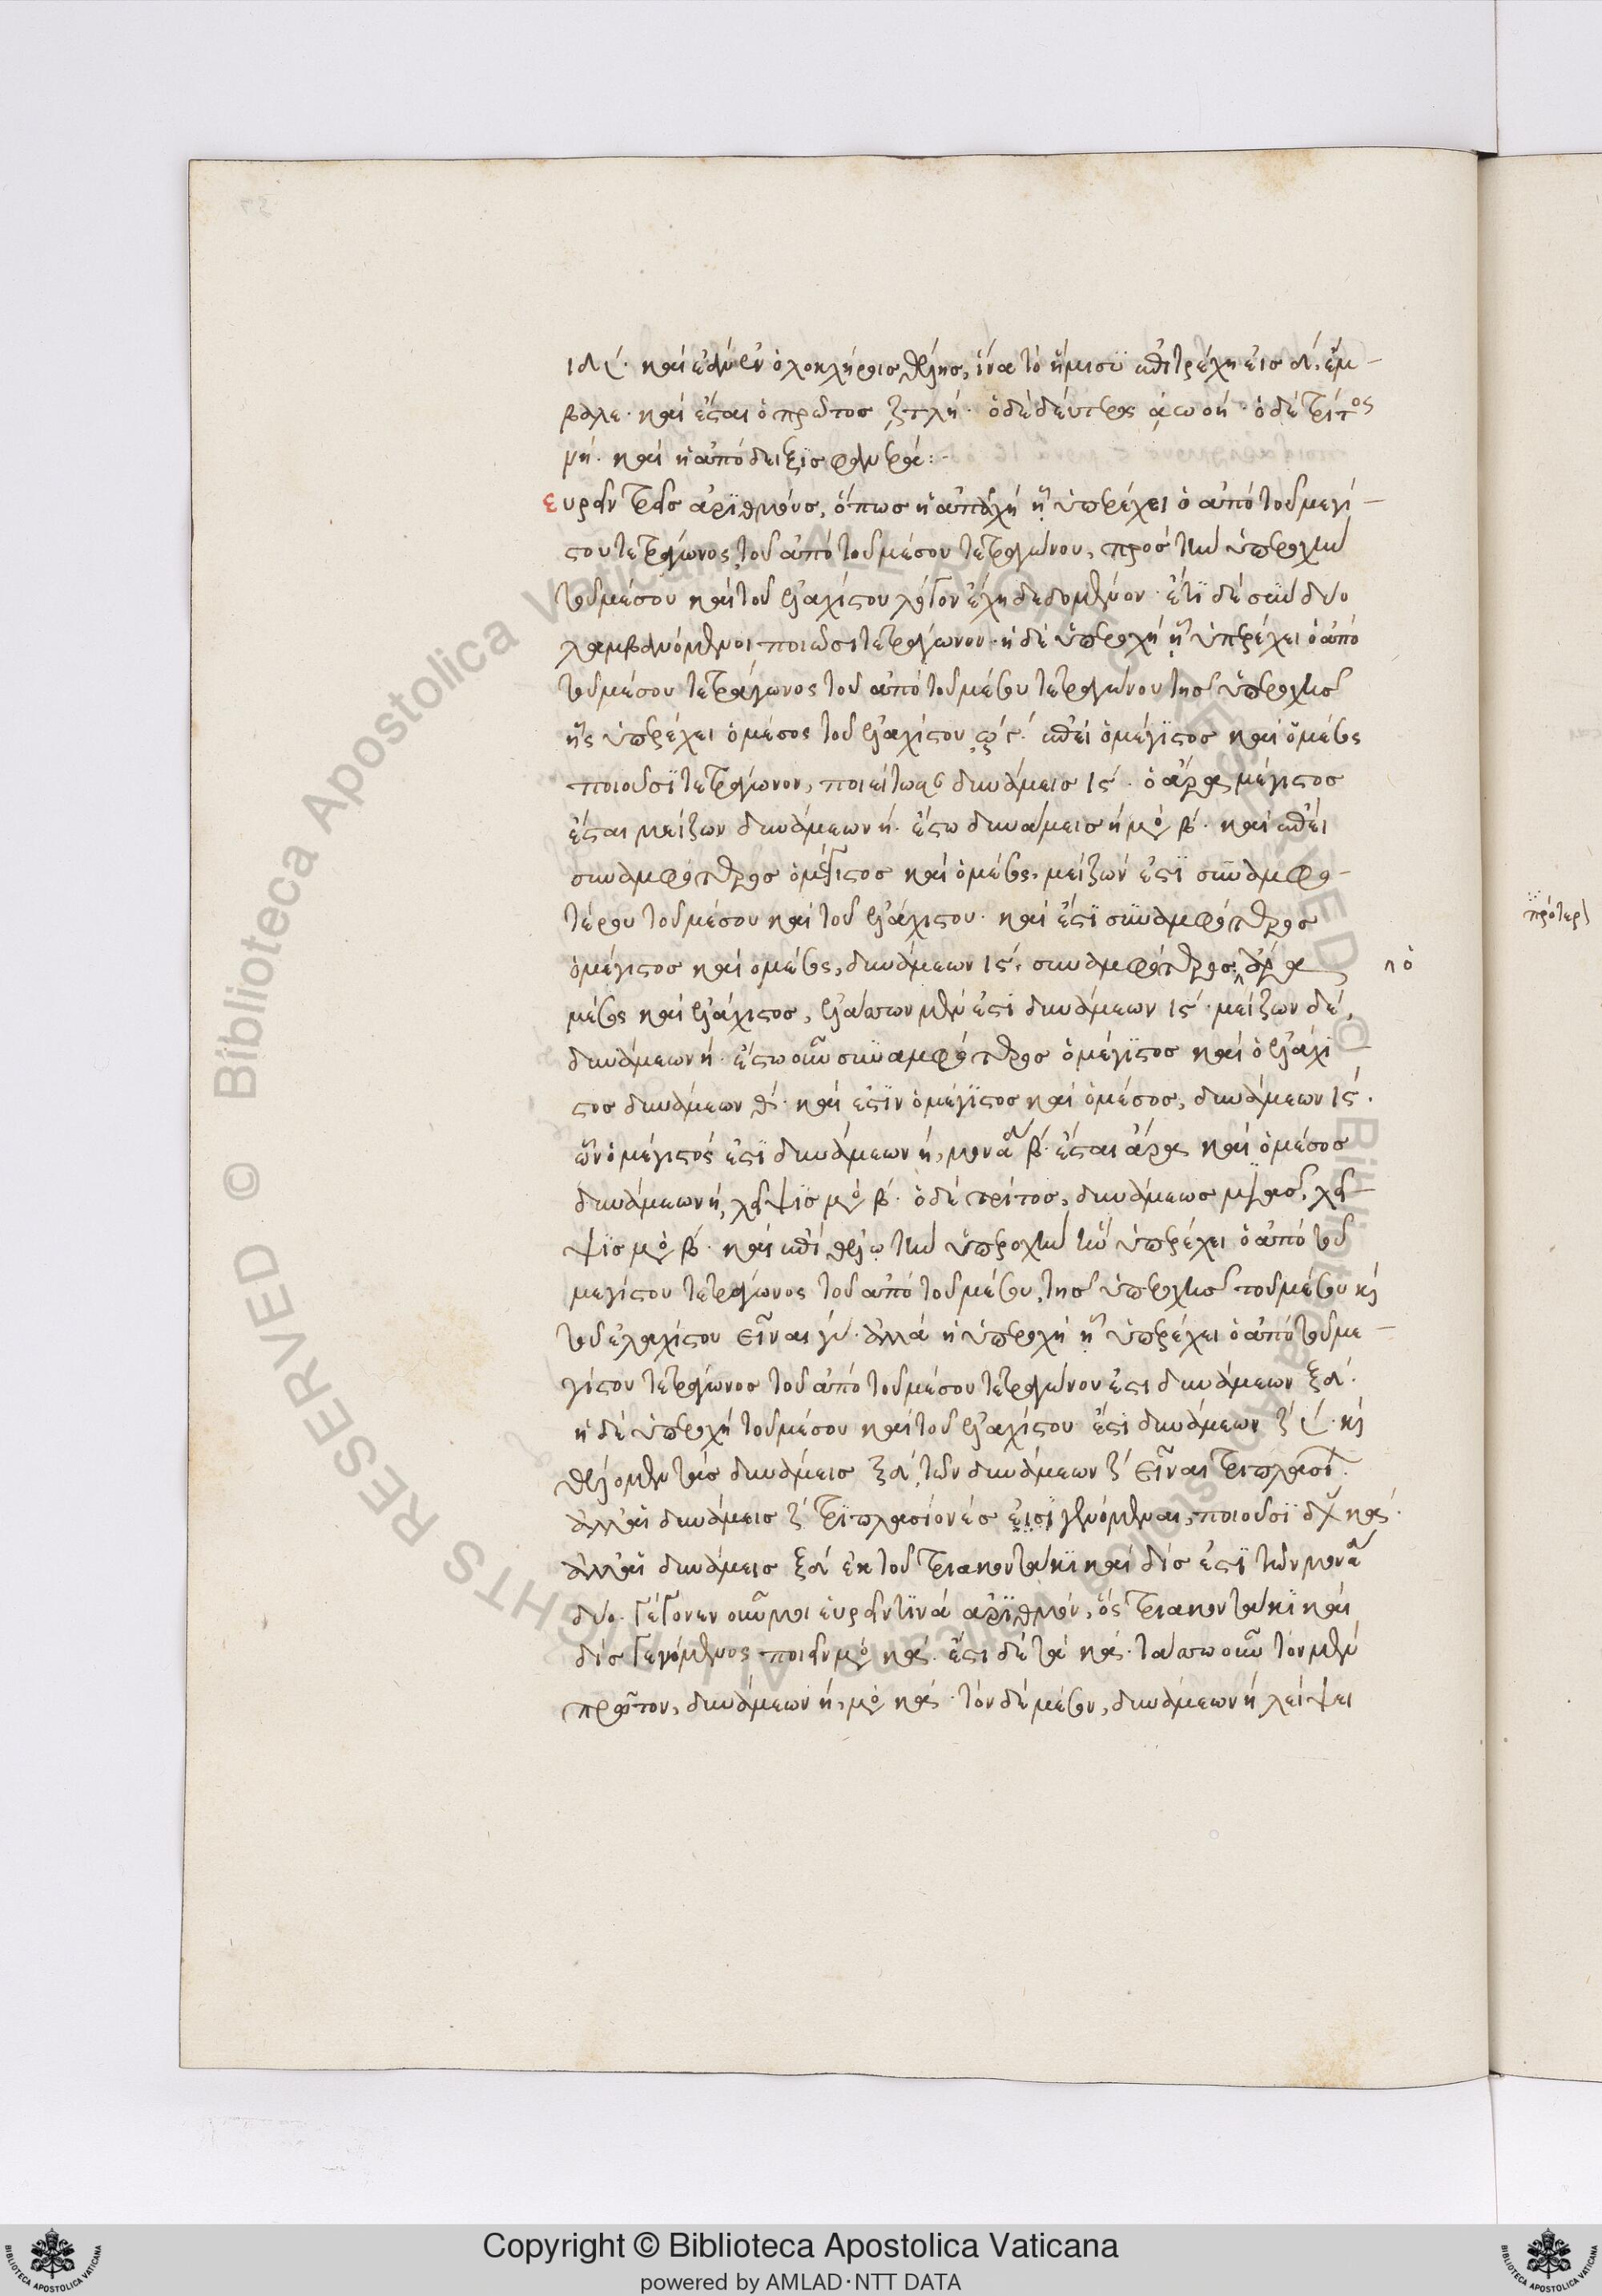 καὶ ἐὰν ἐν ὁλοκλήροις θέλῃς, ἵνα τὸ ἥμισυ ἐπιτρέχῃ εἰς δ΄, ἔμ-
βαλε. καὶ ἔσται ὁ πρῶτος ͵ζτλή. ὁ δὲ δεύτερος ͵αωοή. ὁ δὲ τρίτος
νή. καὶ ἡ ἀπόδειξις φανερά:-
εὑρεῖν τρεῖς ἀριθμοὺς, ὅπως ἡ ᾗ ὑπερέχει ὁ ἀπὸ τοῦ μεγί-
στου τετράγωνος τοῦ ἀπὸ τοῦ μέσου τετραγώνου, πρὸς τὴν ὑπεροχὴν
τοῦ μέσου καὶ τοῦ ἐλαχίστου λόγον ἔχῃ δεδομένον. ἔτι δὲ σὺν δύο
λαμβανόμενοι ποιῶσι τετράγωνον. ἡ δὲ ὑπεροχὴ ᾗ ὑπερέχει ὁ ἀπὸ
τοῦ μέσου τετράγωνος τοῦ ἀπὸ τοῦ μέσου τετραγώνου τῆς ὑπεροχῆς
ἧς ὑπερέχει ὁ μέσος τοῦ ἐλαχίστου ἐπεὶ ὁ μέγιστος καὶ ὁ μέσος
ποιοῦσι τετράγωνον, ποιείτωσαν δυνάμεις ις΄. ὁ ἄρα μέγιστος
ἔσται μείζων δυνάμεων ή. ἔστω δυνάμεις ή μο β΄. καὶ ἐπεὶ
συναμφότερος ὁ μέγιστος καὶ ὁ μέσος, μείζων ἐστὶ συναμφο-
τέρου τοῦ μέσου καὶ τοῦ ἐλαχίστου. καὶ ἔστι συναμφότερος
ὁ μέγιστος καὶ ὁ μέσος, δυνάμεων ις΄. συναμφότερος ἄρα ὁ
μέσος καὶ ἐλάχιστος, ἐλάττων μέν ἐστι δυνάμεων ις΄. μείζων δὲ,
δυνάμεων ή. ἔστω οὖν συναμφότερος ὁ μέγιστος καὶ ὁ ἐλάχι
στος δυνάμεων θ΄. καὶ ἐστὶν ὁ μέγιστος καὶ ὁ μέσος, δυνάμεων ις΄.
ὧν ὁ μέγιστός ἐστι δυνάμεων ή, μονάδ β΄. ἔσται ἄρα καὶ ὁ μέσος
δυνάμεων ή, λείψις μο β΄. ὁ δὲ τρίτος, δυνάμεως μιᾶς, λεί-
ψις μο β΄. καὶ ἐπεὶ θέλω τὴν ὑπεροχὴν ἣν ὑπερέχει ὁ ἀπὸ τοῦ
μεγίστου τετράγωνος τοῦ ἀπὸ τοῦ μέσου, τῆς ὑπεροχῆς τοῦ μέσου κὶ
τοῦ ἐλαχίστου εἶναι γ. ἀλλὰ ἡ ὑπεροχὴ ᾗ ὑπερέχει ὁ ἀπὸ τοῦ με-
γίστου τετράγωνος τοῦ ἀπὸ τοῦ μέσου τετραγώνου ἐστι δυνάμεων ξδ΄.
ἡ δὲ ὑπεροχὴ τοῦ μέσου καὶ τοῦ ἐλαχίστου ἐστὶ δυνάμεων ζ΄ κὶ
θέλομεν τὰς δυνάμεις ξδ΄, τῶν δυνάμεων ζ΄ εἶναι τριπλασί.
ἀλλ' αἱ δυνάμεις ζ΄ τριπλασίονές εἰσι γενόμεναι, ποιοῦσι δυ κα΄.
ἀλλ' αἱ δυνάμεις ξδ΄ ἐκ τοῦ τριακοντάκι καὶ δίς ἐστι τῶν μονάδ
δύο. γέγονεν οὖν μοι εὑρεῖν τινὰ ἀριθμόν, ὃς τριακοντάκι καὶ
δὶς γενόμενος ποιεῖν μο κα΄. ἔστι δὲ τὰ κα΄. τάττω οὖν τὸν μὲν
πρῶτον, δυνάμεων ή, μο κα΄. τὸν δὲ μέσον, δυνάμεων ή λείψει
Biblioteca Apostolica Vaticana ALL RIGHTS RESERVED © Biblioteca Apostolica Vaticana ALL RIGHTS RESERVED ©
Copyright © Biblioteca Apostolica Vaticana
powered by AMLAD·NTT DATA